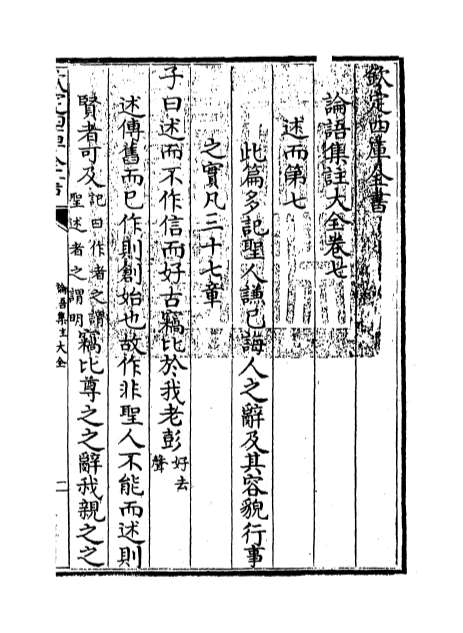 欽定四庫全書
論語集註大全卷七
述而第七
此篇多記聖人謙己誨人之辭及其容貌行事
之實凡三十七章
子曰述而不作信而好古竊比於我老彭好去聲
述傳舊而已作則創始也故作非聖人不能而述則
賢者可及記曰作者之謂聖述者之謂明竊比尊之之辭我親之之
欽定四庫全書
論語集註大全
一